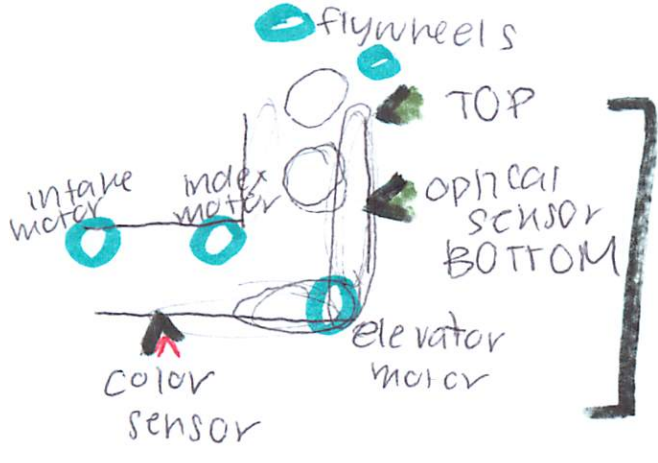 flywheels
TOP
intake
motor
index
motor
optical
sensor
BOTTOM
elevator
motor
color
sensor